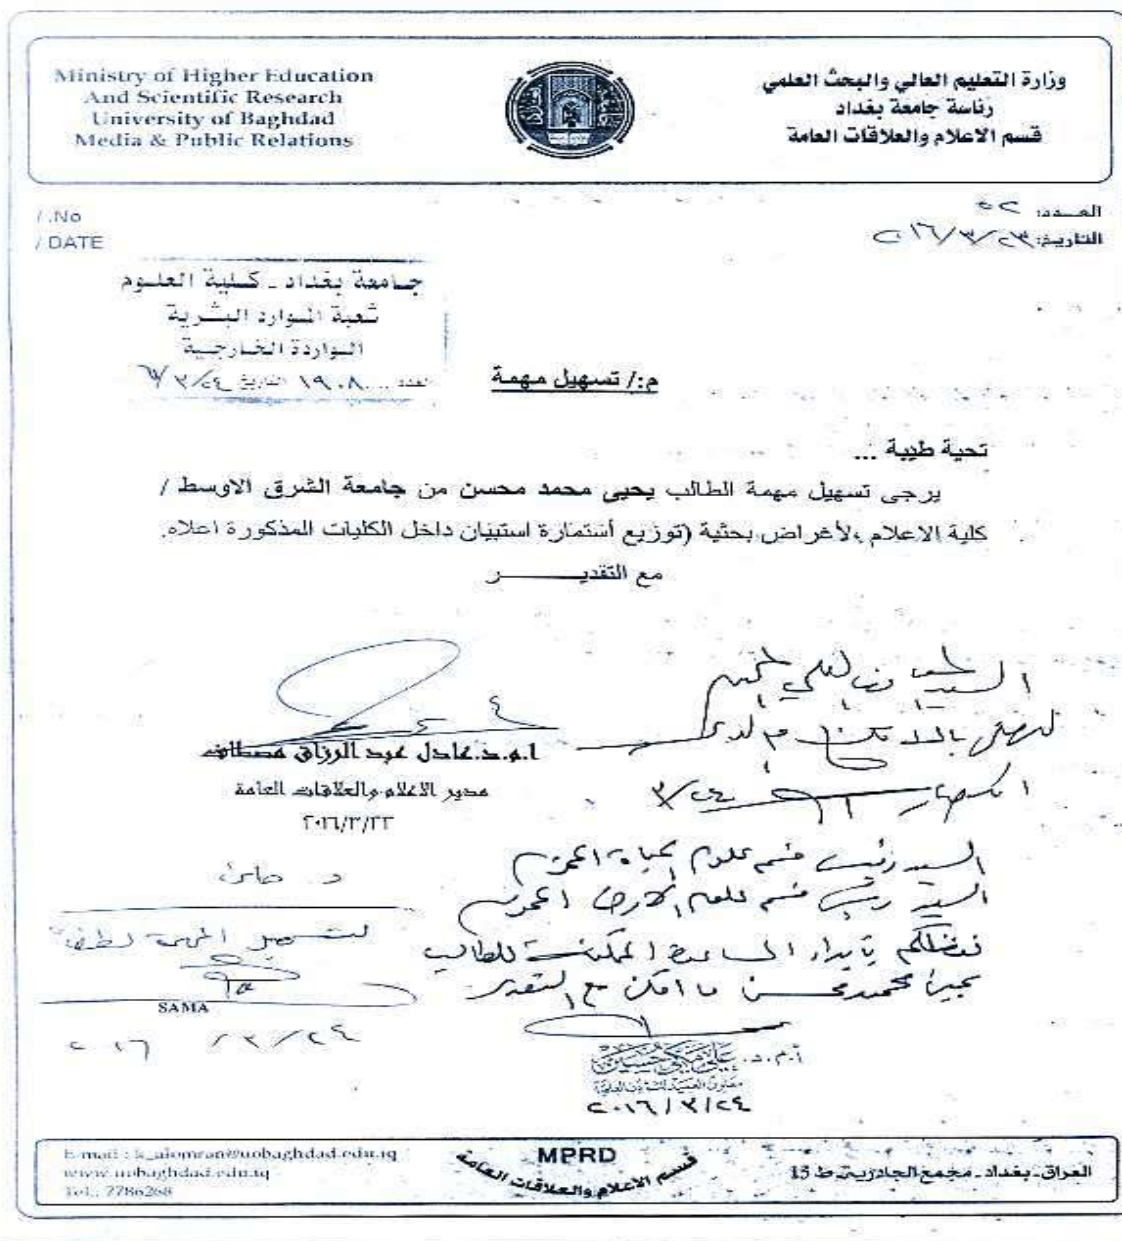 Ministry of Higher Education
And Scientific Research
University of Baghdad
Media & Public Relations
وزارة التعليم العالي والبحث العلمي
رئاسة جامعة بغداد
قسم الاعلام والعلاقات العامة
/ .No
/ DATE
العـدد: ٥٢
التاريخ: ٢٠١٦/٣/٢٣
جامعة بغداد - كلية العلوم
شعبة الموارد البشرية
الواردة الخارجية
العدد ١٩٠٨ التاريخ ٣/٢٤
م:/ تسهيل مهمة
تحية طيبة ...
يرجى تسهيل مهمة الطالب يحيى محمد محسن من جامعة الشرق الاوسط /
كلية الاعلام ,لأغراض بحثية (توزيع أستمارة استبيان داخل الكليات المذكورة اعلاه.
مع التقديـــــــر
السيد
٣/٢٤
ا.م.د.عادل عبد الرزاق مصطاف
مدير الاعلام والعلاقات العامة
٢٠١٦/٣/٢٣
السيد رئيس قسم علوم الحياة المحترم
السيد رئيس قسم علوم الارض المحترم
تفضلكم بابداء المساعدة الممكنة للطالب
يحيى محمد محسن ما امكن مع التقدير
لتسهيل المهمة لطفا
SAMA
٢٠١٦/٣/٢٤
أ.م.د. علي مكي حسين
معاون العميد للشؤون العلمية
٢٠١٦/٣/٢٤
www.uobaghdad.edu.iq
Tel.: 7786268
MPRD
قسم الاعلام والعلاقات العامة
العراق - بغداد - مجمع الجادرية - ط 15